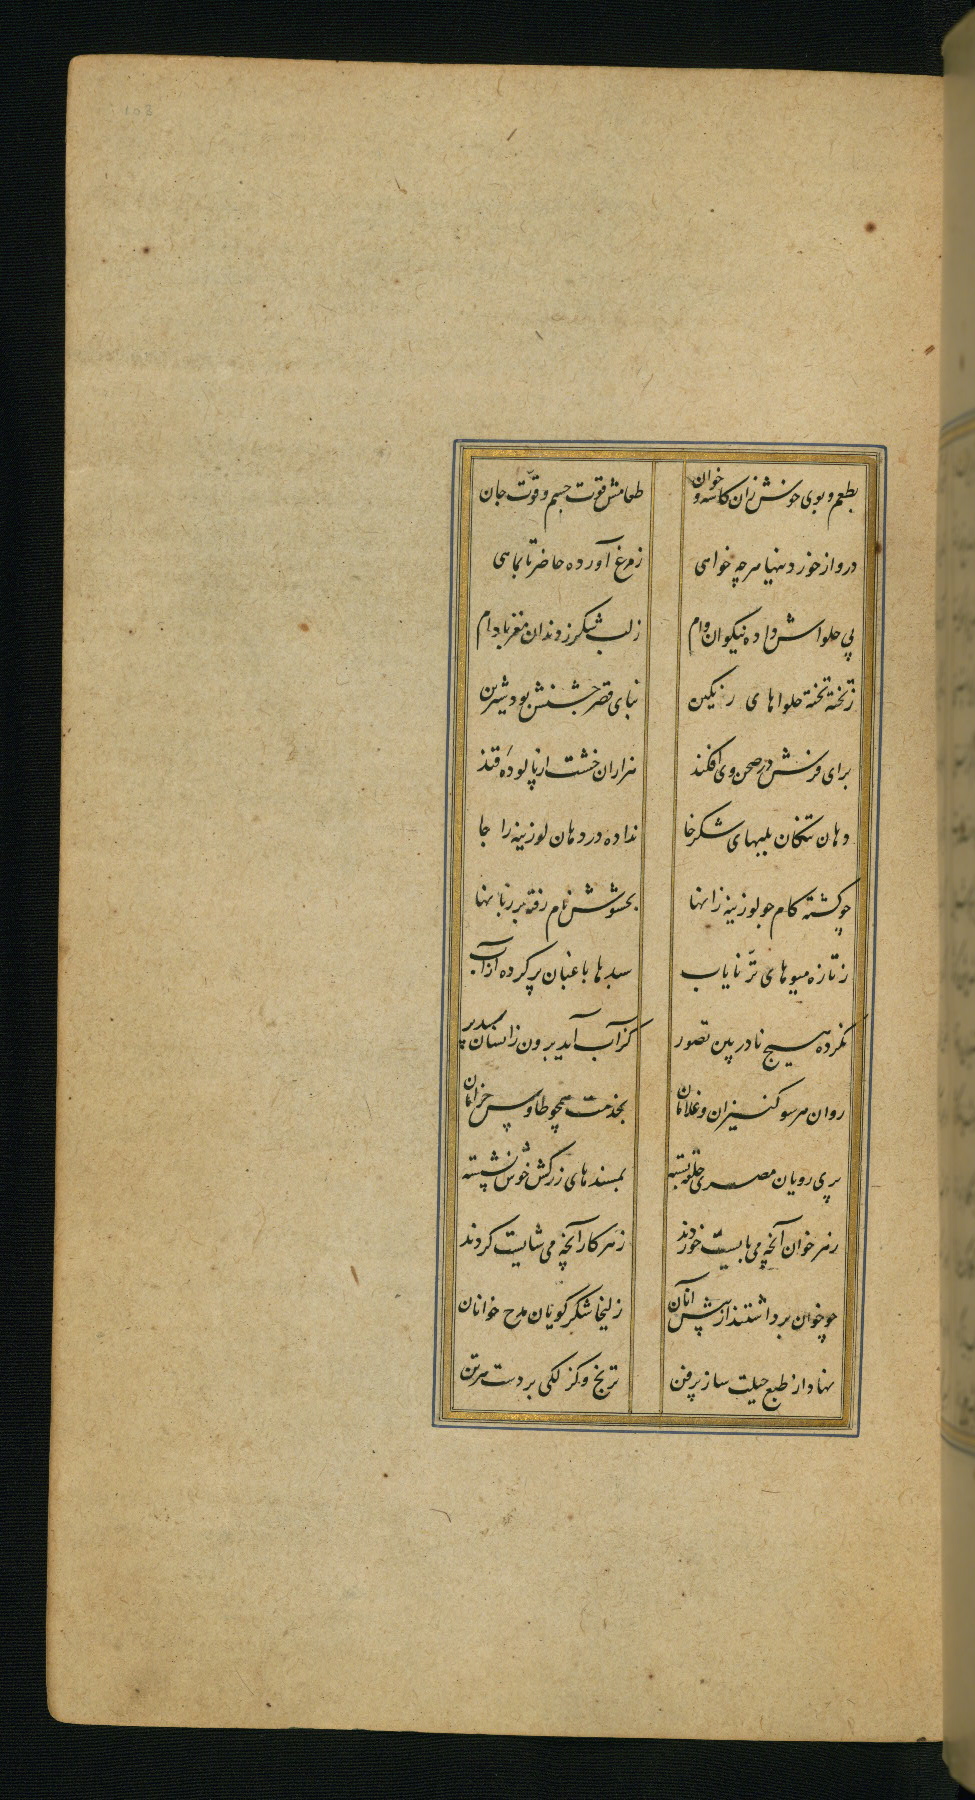 103
بطعم و بوی خوش زان کاسه و خوان طعامش قوت جسم و قوّت جان
درو از خوردنیها هرچه خواهی ز مرغ آورده حاضر تا بماهی
پی حلواش داده نیکوان وام ز لب شکر ز دندان مغز بادام
ز تخته تخته حلواهای رنکین بنای قصر جشنش بود شیرین
برای فرش در صحن وی افکند هزاران خشت از پالودهٔ قند
دهان تنکان بلبهای شکرخا نداده در دهان لوزینه را جا
چو کشته کام جو لوزینه زانها بحشوش نام رفته بر زبانها
ز تازه میوهای ترّ نایاب سبدها باغبان پر کرده از آب
نکرده هیچ نادربین تصور کز آب آید برون زانسان سبد پر
روان هر سو کنیزان و غلامان بخدمت همچو طاوس خرامان
پری رویان مصری حلقه بسته بمسندهای زرکش خوش نشسته
ز هر خوان آنچه می بایست خوردند ز هر کار آنچه می شایست کردند
چو خوان برداشتند از پیش آنان زلیخا شکر کویان مدح خوانان
نهاد از طبع حیلت ساز پر فن ترنج و کزلکی بر دست هر تن